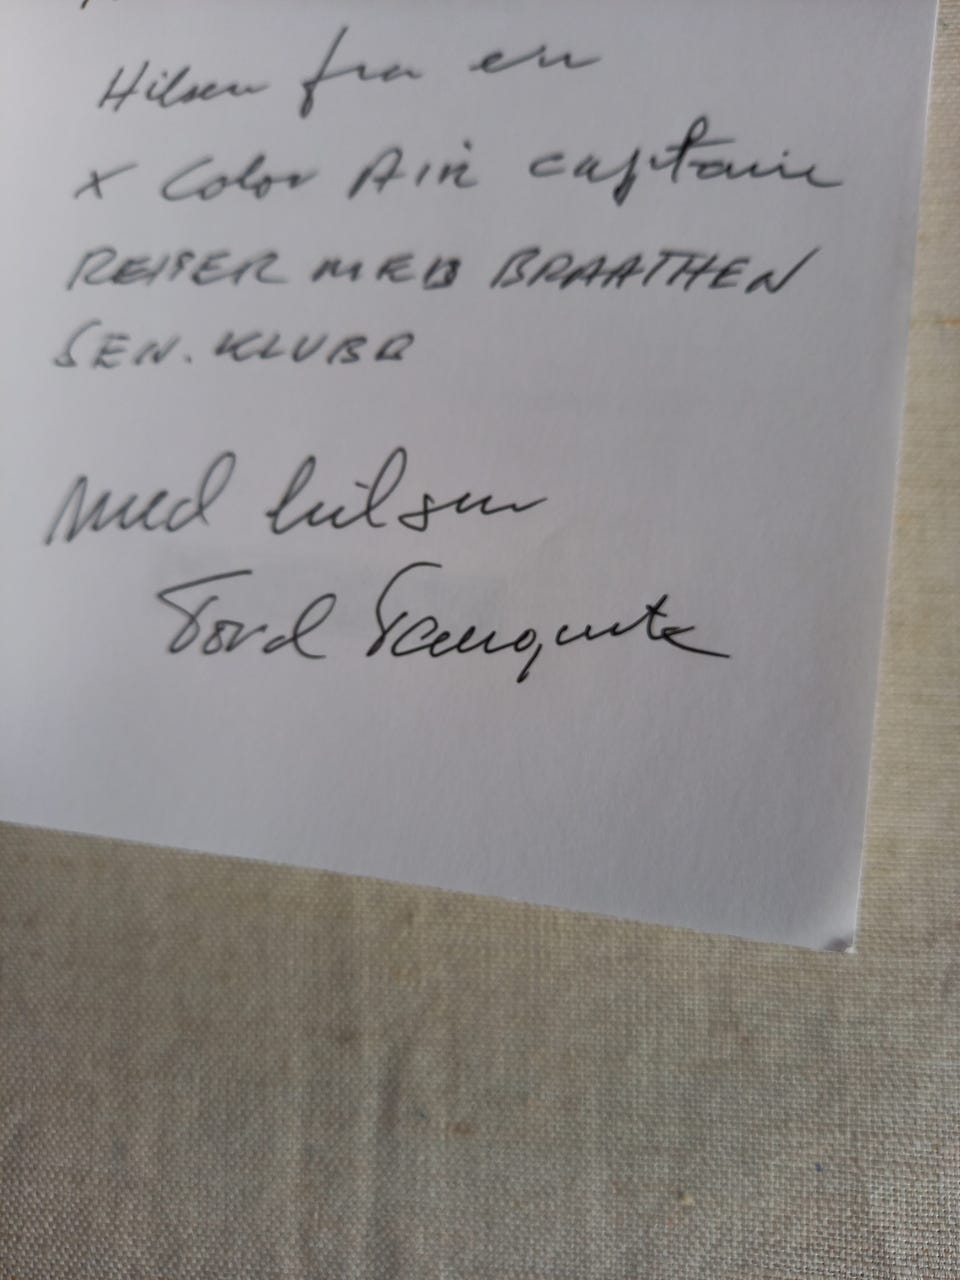 Hilsen fra en
x Color Air captain
REISER MED BRAATHEN
SEN. KLUBB
Med hilsen
Tord